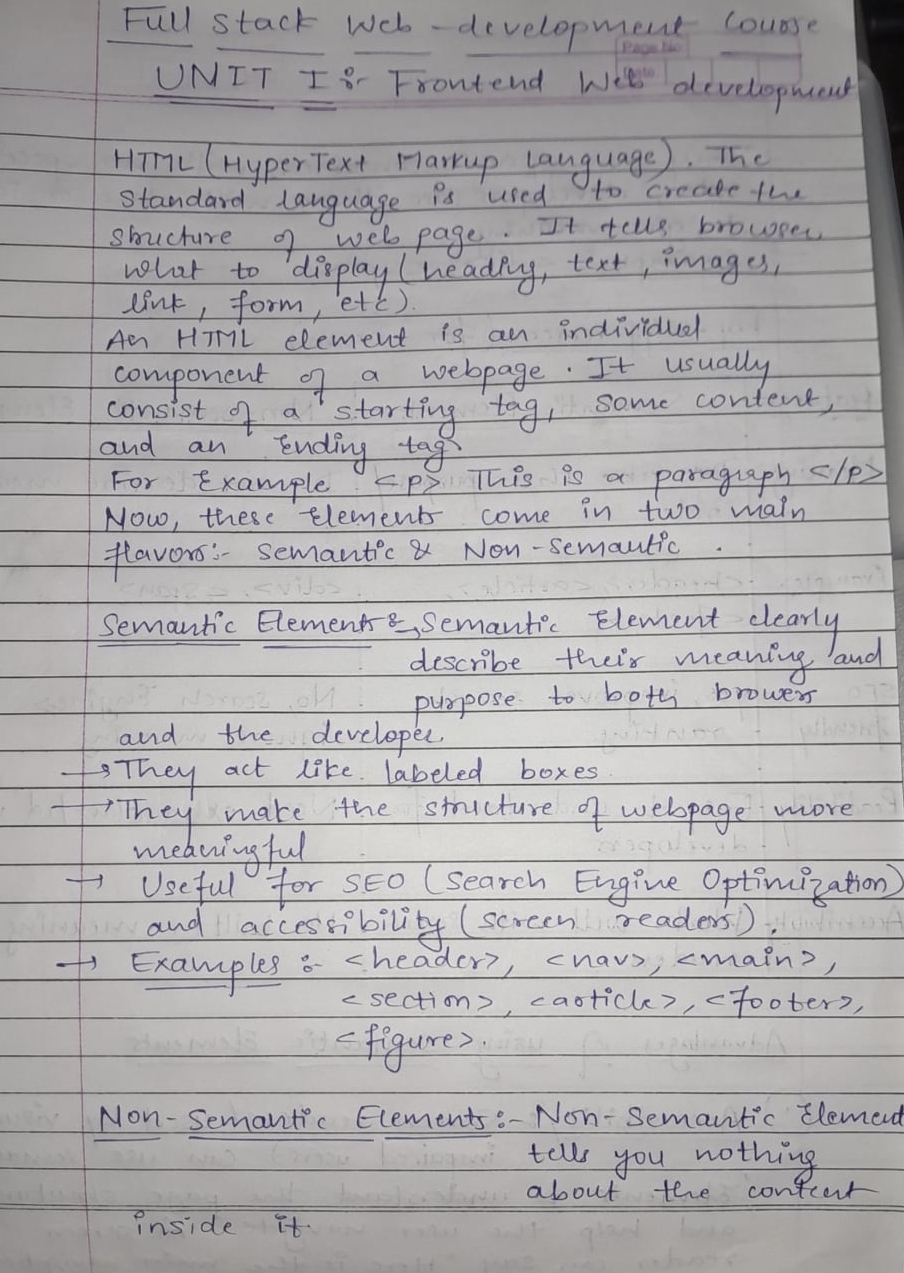 Full Stack Web-development Course
Page No
UNIT I :- Frontend Web development
HTML (HyperText Markup Language). The
Standard language is used to create the
structure of web page. It tells browser
what to display (heading, text, images,
link, form, etc).
An HTML element is an individual
component of a webpage. It usually
consist of a starting tag, some content,
and an Ending tag.
For Example <p> This is a paragraph </p>
Now, these Elements come in two main
flavors:- Semantic & Non-Semantic.
Semantic Elements :- Semantic Element clearly
describe their meaning and
purpose to both browers
and the developer.
→ They act like labeled boxes.
→ They make the structure of webpage more
meaningful
→ Useful for SEO (Search Engine Optimization)
and accessibility (screen readers).
→ Examples :- <header>, <nav>, <main>,
<section>, <article>, <footer>,
<figure>.
Non-Semantic Elements :- Non-Semantic Element
tells you nothing
about the content
inside it.